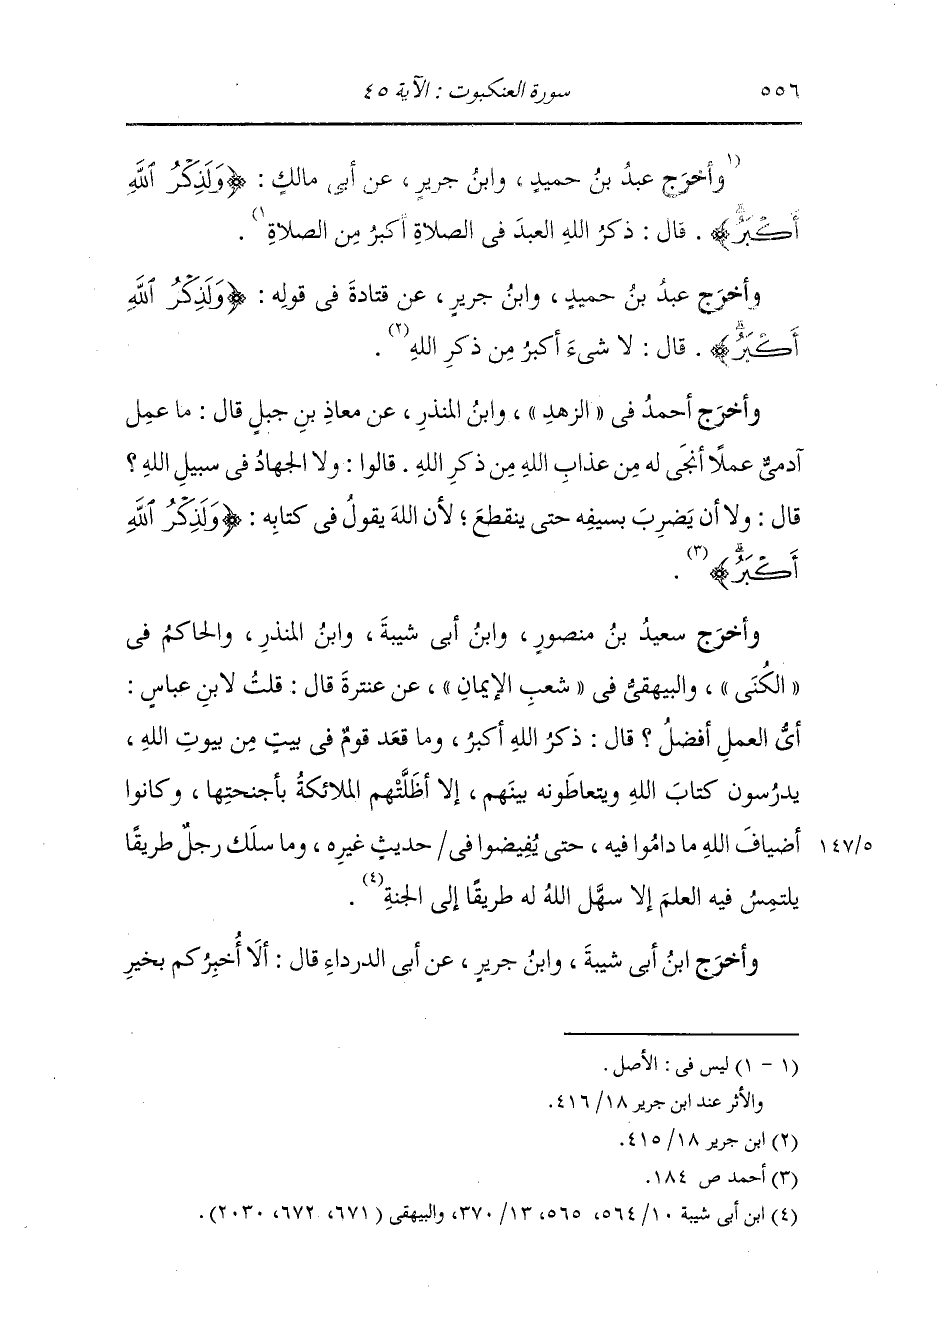 ٥٥٦ سورة العنكبوت : الآية ٤٥
(١) وأخرَج عبدُ بنُ حميدٍ ، وابنُ جريرٍ ، عن أبى مالكٍ : ﴿وَلَذِكْرُ ٱللَّهِ
أَكْبَرُۗ﴾ . قال : ذكرُ اللهِ العبدَ فى الصلاةِ أكبرُ مِن الصلاةِ(١) .
وأخرَج عبدُ بنُ حميدٍ ، وابنُ جريرٍ ، عن قتادةَ فى قولِه : ﴿وَلَذِكْرُ ٱللَّهِ
أَكْبَرُۗ﴾ . قال : لا شىءَ أكبرُ مِن ذكرِ اللهِ(٢) .
وأخرَج أحمدُ فى « الزهدِ » ، وابنُ المنذرِ ، عن معاذِ بنِ جبلٍ قال : ما عمِل
آدمىٌّ عملًا أنجَى له مِن عذابِ اللهِ مِن ذكرِ اللهِ . قالوا : ولا الجهادُ فى سبيلِ اللهِ ؟
قال : ولا أن يَضرِبَ بسيفِه حتى ينقطعَ ؛ لأن اللهَ يقولُ فى كتابِه : ﴿وَلَذِكْرُ ٱللَّهِ
أَكْبَرُۗ﴾(٣) .
وأخرَج سعيدُ بنُ منصورٍ ، وابنُ أبى شيبةَ ، وابنُ المنذرِ ، والحاكمُ فى
« الكُنَى » ، والبيهقىُّ فى « شعبِ الإيمانِ » ، عن عنترةَ قال : قلتُ لابنِ عباسٍ :
أىُّ العملِ أفضلُ ؟ قال : ذكرُ اللهِ أكبرُ ، وما قعَد قومٌ فى بيتٍ مِن بيوتِ اللهِ ،
يدرُسون كتابَ اللهِ ويتعاطَونه بينَهم ، إلا أظَلَّتْهم الملائكةُ بأجنحتِها ، وكانوا
١٤٧/٥ أضيافَ اللهِ ما دامُوا فيه ، حتى يُفِيضوا فى/ حديثٍ غيرِه ، وما سلَك رجلٌ طريقًا
يلتمِسُ فيه العلمَ إلا سهَّل اللهُ له طريقًا إلى الجنةِ(٤) .
وأخرَج ابنُ أبى شيبةَ ، وابنُ جريرٍ ، عن أبى الدرداءِ قال : ألَا أُخبِرُكم بخيرِ
(١ - ١) ليس فى : الأصل .
والأثر عند ابن جرير ١٨/ ٤١٦.
(٢) ابن جرير ١٨/ ٤١٥.
(٣) أحمد ص ١٨٤.
(٤) ابن أبى شيبة ١٠/ ٥٦٤، ٥٦٥، ١٣/ ٣٧٠، والبيهقى (٦٧١، ٦٧٢، ٢٠٣٠).